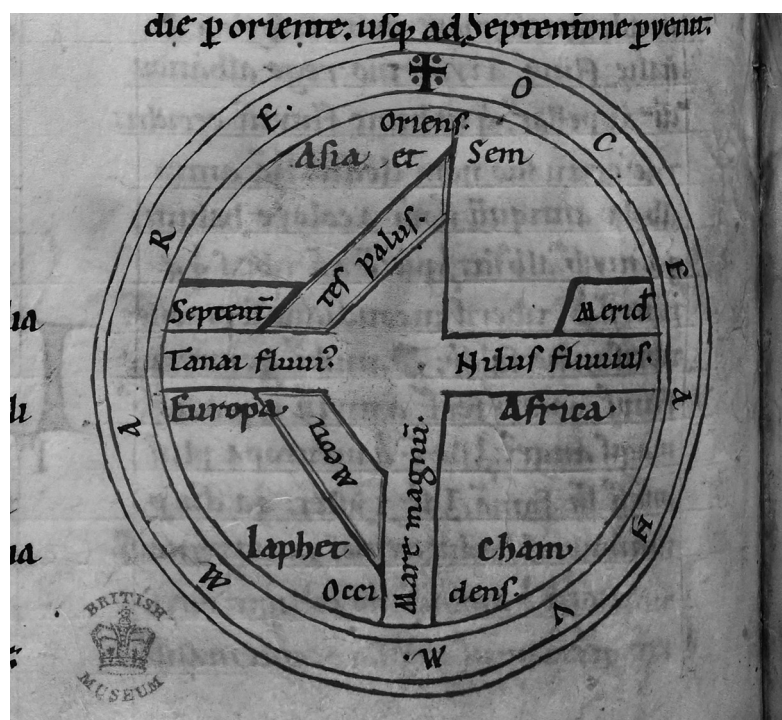 die ꝑ oriente. usq; ad Septentrione ꝑvenit.
OCEANUM. MARE.
Oriens.
Asia et Sem
tes palus.
Septent̄
Merid
Tanai fluui?
Nilus fluuius.
Europa
Africa
Meoti
Mare magnū.
Iaphet
Cham
Occi
dens.
BRITISH
MUSEUM